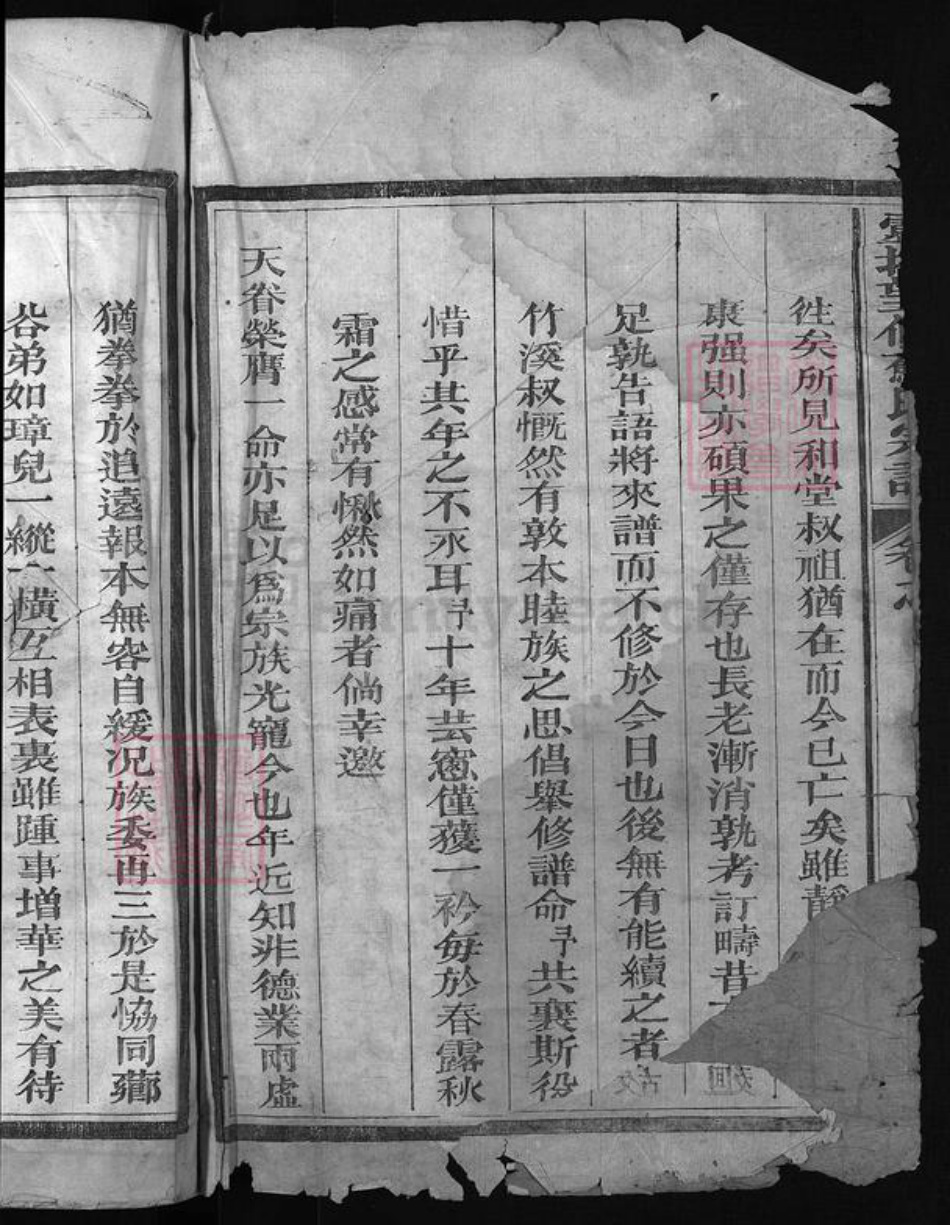 徃矣所見和堂叔祖猶在而今已亡矣雖靜
康强則亦碩果之僅存也長老漸消孰考訂疇昔
足孰告語將來譜而不修於今日也後無有能續之者
竹溪叔慨然有敦本睦族之思倡舉修譜命予共襄斯役
惜乎其年之不永耳予十年芸窻僅獲一衿每於春露秋
霜之感常有愀然如痛者倘幸邀
天眷榮膺一命亦足以爲宗族光寵今也年近知非德業兩虛
猶拳拳於追遠報本無容自緩况族委再三於是恊同薌
谷弟如璋兒一縱一橫互相表裏雖踵事增華之美有待